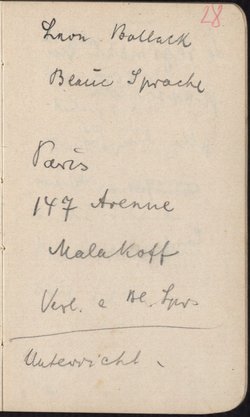 28
Leon Bollack
Blaue Sprache
Paris
147 Avenue
Malakoff
Verl. e Bl. Spr
Unterricht.